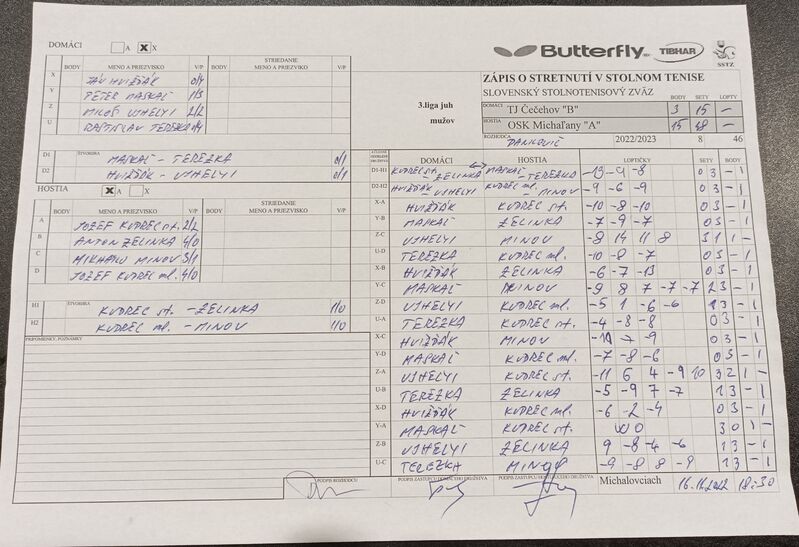 DOMÁCI A X X
Butterfly TIBHAR SSTZ
ZÁPIS O STRETNUTÍ V STOLNOM TENISE
SLOVENSKÝ STOLNOTENISOVÝ ZVÄZ
BODY MENO A PRIEZVISKO V/P BODY STRIEDANIE MENO A PRIEZVISKO V/P
X JÁN HVIŽĎÁK 0/4
Y PETER MASKAĽ 1/3
Z MILOŠ UJHELYI 2/2
U RASTISLAV TEREZKA 0/4
3.liga juh
mužov
DOMÁCI TJ Čečehov "B" BODY 3 SETY 15 LOPTY -
HOSTIA OSK Michaľany "A" 15 48 -
ROZHODCA 2022/2023 8 46
D1 ŠTVORHRA MASKAĽ - TEREZKA 0/1
D2 HVIŽĎÁK - UJHELYI 0/1
HOSTIA X A X
BODY MENO A PRIEZVISKO V/P BODY STRIEDANIE MENO A PRIEZVISKO V/P
A JOZEF KUDREC st. 2/2
B ANTON ZELINKA 4/0
C MIKHAILO MINOV 3/1
D JOZEF KUDREC ml. 4/0
H1 ŠTVORHRA KUDREC st. - ZELINKA 1/0
H2 KUDREC ml. - MINOV 1/0
PRIPOMIENKY, POZNÁMKY
DOMÁCI HOSTIA LOPTIČKY SETY BODY
D1-H1 KUDREC st. - ZELINKA MASKAĽ - TEREZKA -13 -9 -8 0 3 - 1
D2-H2 HVIŽĎÁK - UJHELYI KUDREC ml. - MINOV -9 -6 -9 0 3 - 1
X-A HVIŽĎÁK KUDREC st. -10 -8 -10 0 3 - 1
Y-B MASKAĽ ZELINKA -7 -9 -7 0 3 - 1
Z-C UJHELYI MINOV -8 14 11 8 3 1 1 -
U-D TEREZKA KUDREC ml. -10 -8 -7 0 3 - 1
X-B HVIŽĎÁK ZELINKA -6 -7 -13 0 3 - 1
Y-C MASKAĽ MINOV -9 8 7 -7 -7 2 3 - 1
Z-D UJHELYI KUDREC ml. -5 1 -6 -6 1 3 - 1
U-A TEREZKA KUDREC st. -4 -8 -8 0 3 - 1
X-C HVIŽĎÁK MINOV -7 -9 0 3 - 1
Y-D MASKAĽ KUDREC ml. -7 -8 -6 0 3 - 1
Z-A UJHELYI KUDREC st. -11 6 4 -9 10 3 2 1 -
U-B TEREZKA ZELINKA -5 -9 7 -7 1 3 - 1
X-D HVIŽĎÁK KUDREC ml. -6 -2 -4 0 3 - 1
Y-A MASKAĽ KUDREC st. WO 3 0 1 -
Z-B UJHELYI ZELINKA 9 -8 -4 -6 1 3 - 1
U-C TEREZKA MINOV -9 -8 8 -9 1 3 - 1
PODPIS ROZHODCU PODPIS ZÁSTUPCU DOMÁCEHO DRUŽSTVA PODPIS ZÁSTUPCU HOSŤUJÚCEHO DRUŽSTVA Michalovciach 18:30